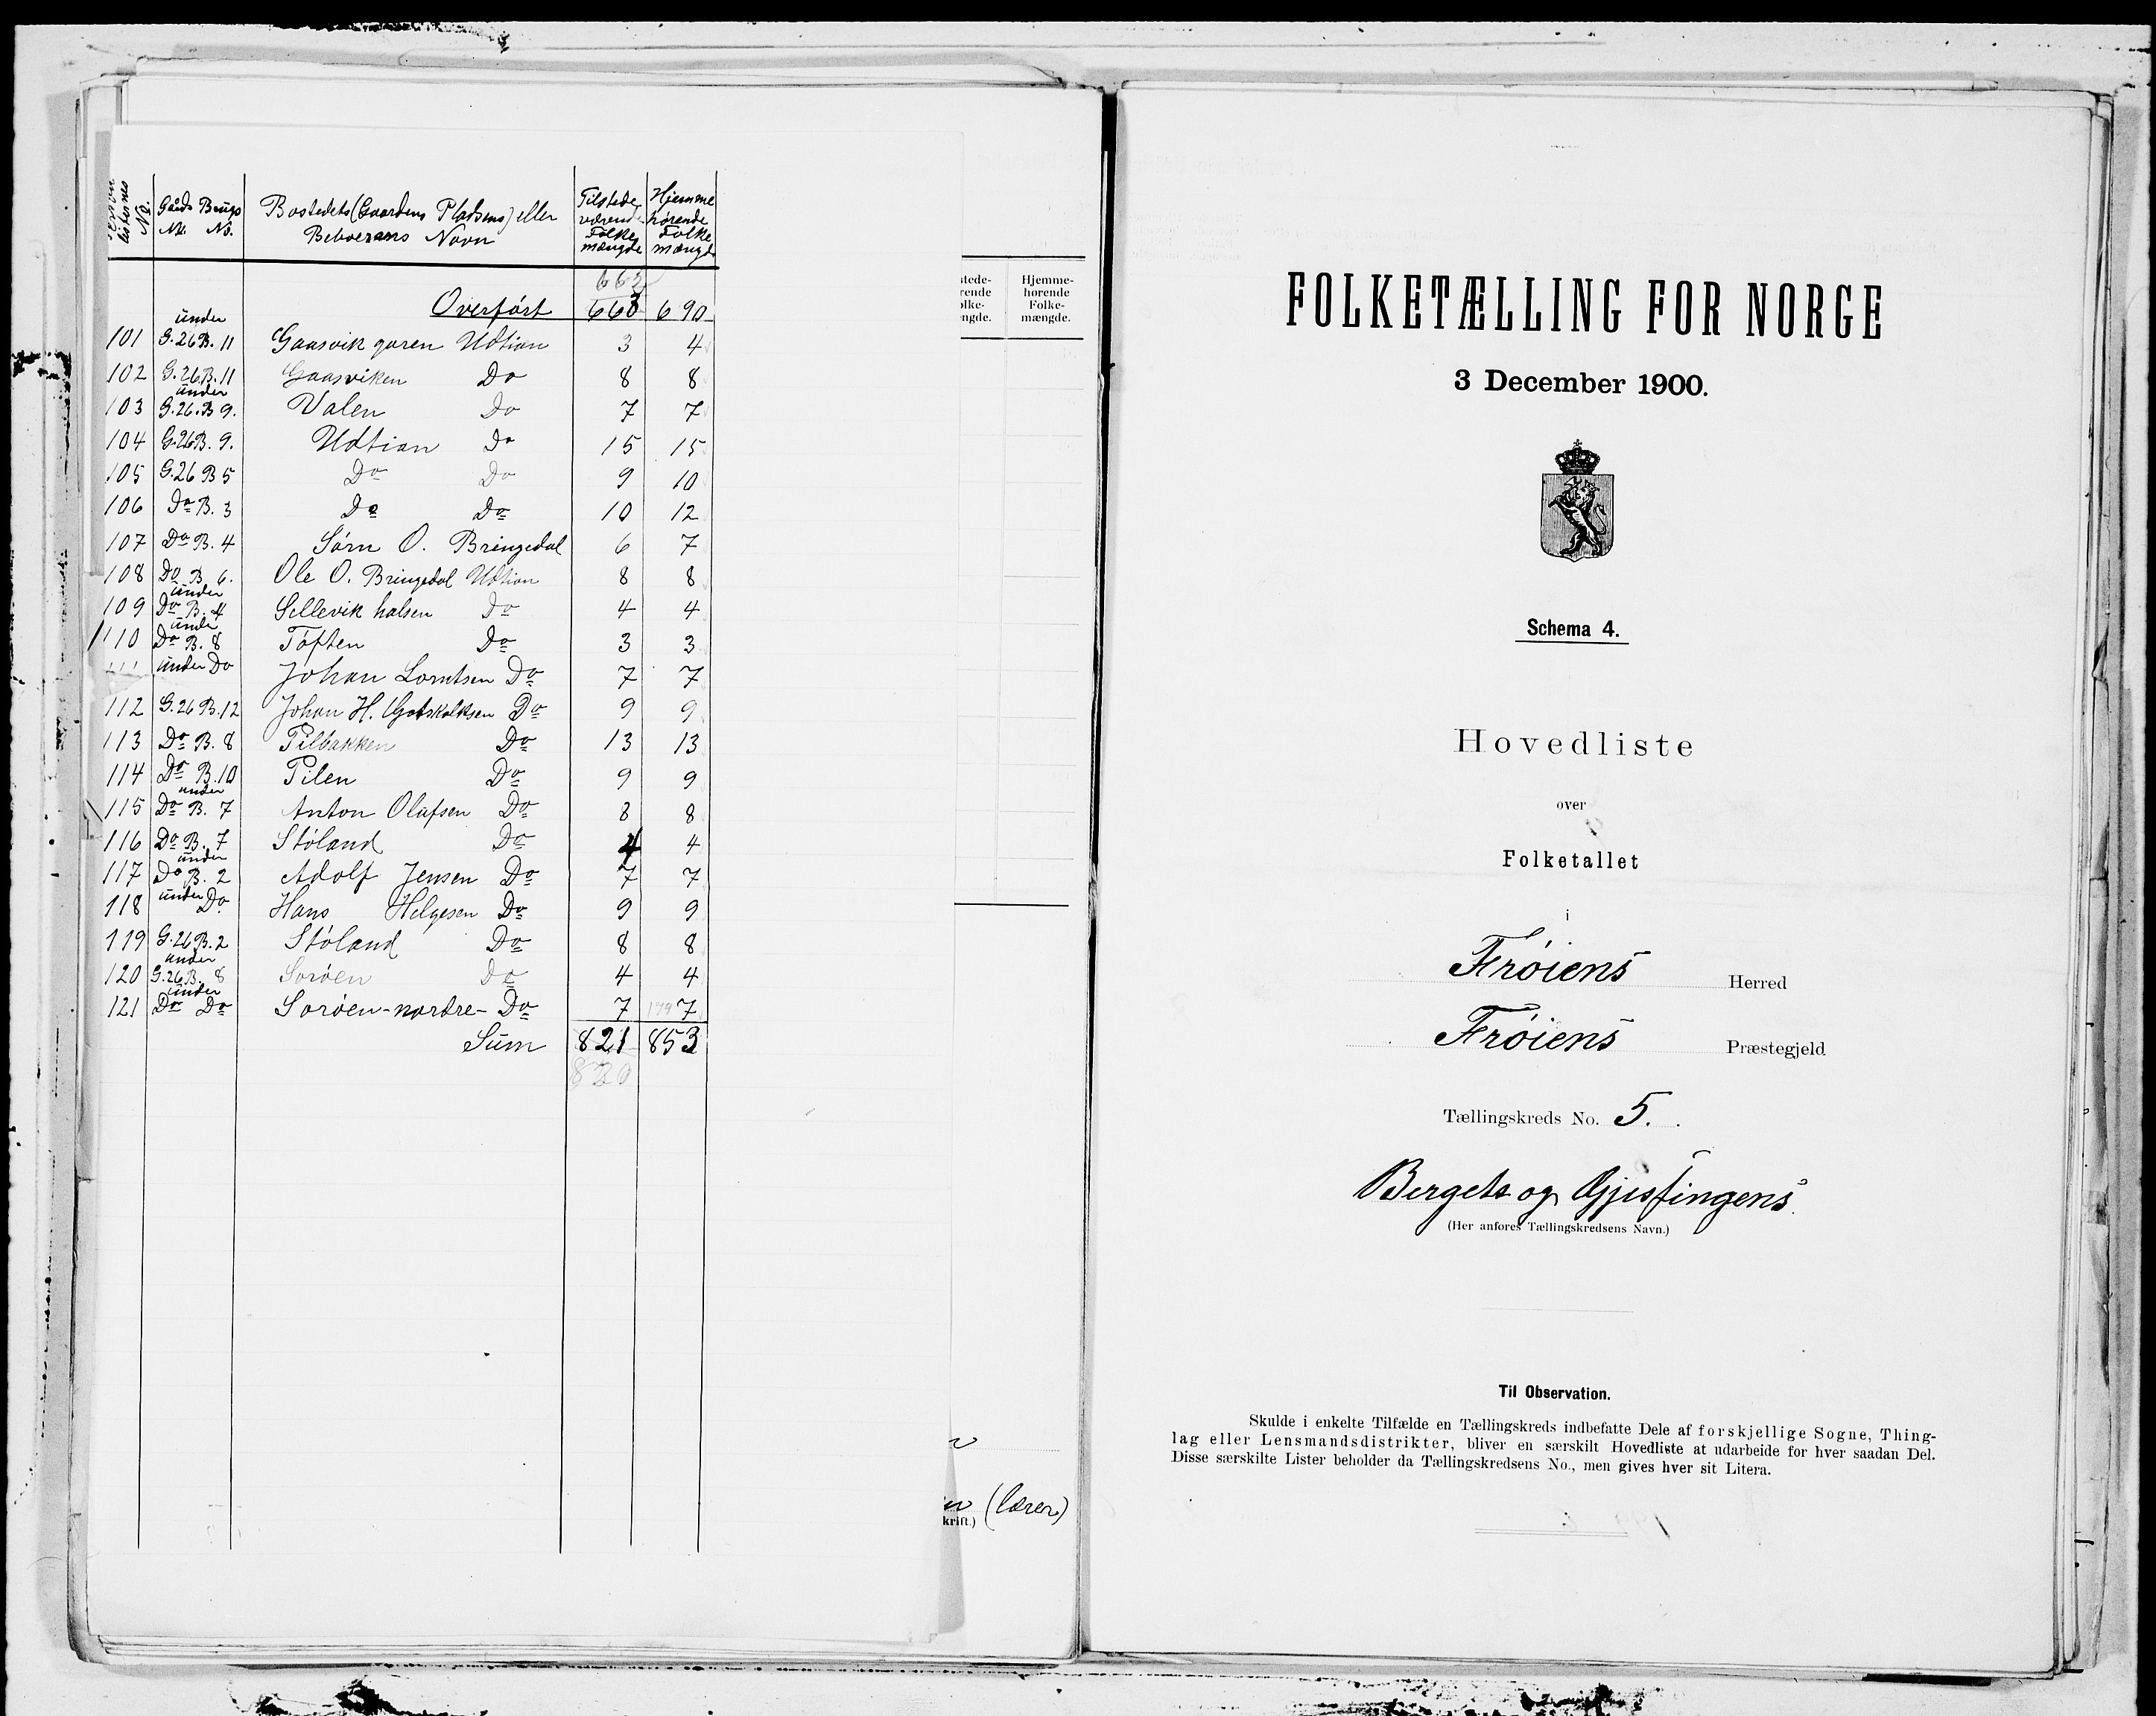 listernes No.
Gårds No. Brugs No.
Bostedets (Gaardens Pladsens) eller Beboerens Navn
Tilstede værende Folke mængde
Hjemme hørende Folke mængde
662
Overført 663 690
under
101 G. 26 B. 11 Gaasvik garen Udtian 3 4
102 G. 26 B. 11 Gaasviken Do 8 8
under
103 G. 26. B 9. Valen Do 7 7
104 G. 26 B. 9. Udtian Do 15 15
105 G. 26 B 5 Do Do 9 10
106 Do B. 3 Do Do 10 12
107 Do B. 4 Sørn O. Bringedal 6 7
108 Do B. 6. Ole O. Bringedal Udtian 8 8
under
109 Do B. 4 Sellevik halsen Do 4 4
unde
110 Do B. 8 Tøften Do 3 3
111 under Do Johan Lorntsen Do 7 7
112 G. 26 B. 12 Johan H. Gotskalksen Do 9 9
113 Do B. 8 Pilbakken Do 13 13
114 Do B. 10 Pilen Do 9 9
under
115 Do B. 7 Anton Olufsen Do 8 8
116 Do B. 7 Støland Do 4 4
under
117 Do B. 2 Adolf Jensen Do 7 7
118 under Do Hans Helgesen Do 9 9
119 G. 26 B. 2 Støland Do 8 8
under
120 G. 26 B. 8 Sorøen Do 4 4
under
121 Do Do Sorøen-nordre- Do 7 7
Sum 821 853
820
stede-
rende
olke-
ngde.
Hjemme-
hørende
Folke-
mængde.
(lærer)
krift.)
FOLKETÆLLING FOR NORGE
3 December 1900.
Schema 4.
Hovedliste
over
Folketallet
i
Frøiens Herred
Frøiens Præstegjeld
Tællingskreds No. 5.
Bergets og Gjesingens
(Her anføres Tællingskredsens Navn.)
Til Observation.
Skulde i enkelte Tilfælde en Tællingskreds indbefatte Dele af forskjellige Sogne, Thing-
lag eller Lensmandsdistrikter, bliver en særskilt Hovedliste at udarbeide for hver saadan Del.
Disse særskilte Lister beholder da Tællingskredsens No., men gives hver sit Litera.